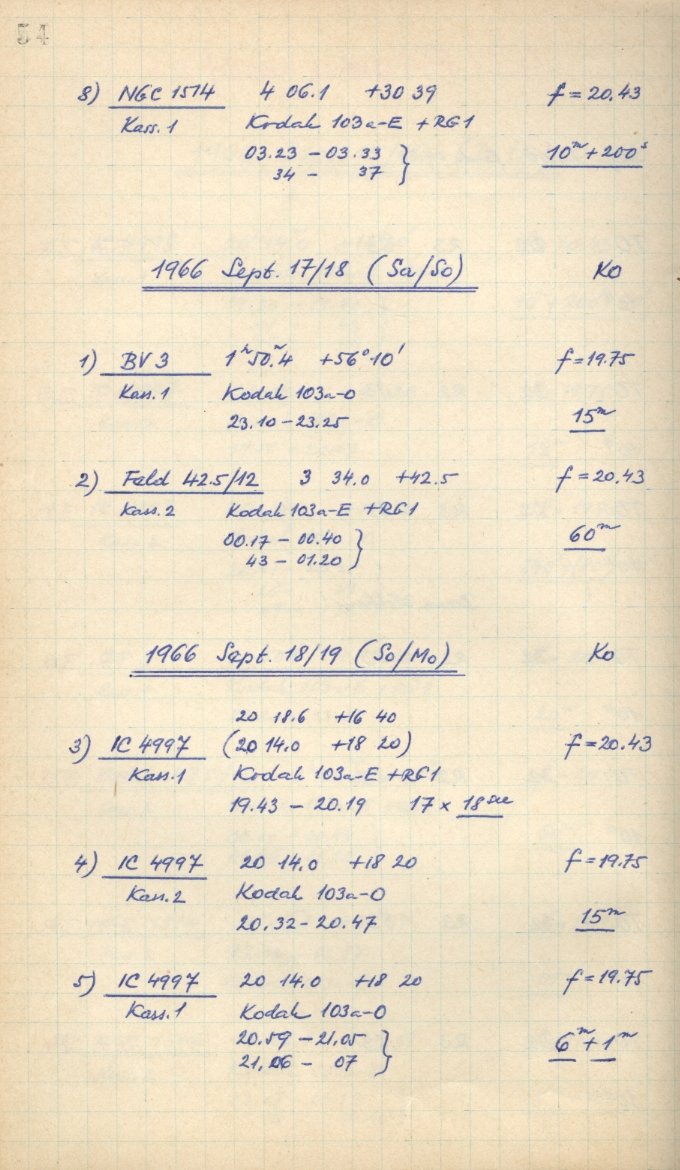 54
8) NGC 1514 4 06.1 +30 39 f = 20.43
Kass. 1 Kodak 103a-E + RG1
03.23 – 03.33 } 10ᵐ + 200ˢ
34 – 37
1966 Sept. 17/18 (Sa/So) Ko
1) BV 3 1ʰ50ᵐ.4 +56°10' f = 19.75
Kass. 1 Kodak 103a-O
23.10 – 23.25 15ᵐ
2) Feld 42.5/12 3 34.0 +42.5 f = 20.43
Kass. 2 Kodak 103a-E + RG1
00.17 – 00.40 } 60ᵐ
43 – 01.20
1966 Sept. 18/19 (So/Mo) Ko
20 18.6 +16 40
3) IC 4997 (20 14.0 +18 20) f = 20.43
Kass. 1 Kodak 103a-E + RG1
19.43 – 20.19 17 × 18 sec
4) IC 4997 20 14.0 +18 20 f = 19.75
Kass. 2 Kodak 103a-O
20.32 – 20.47 15ᵐ
5) IC 4997 20 14.0 +18 20 f = 19.75
Kass. 1 Kodak 103a-O
20.59 – 21.05 } 6ᵐ + 1ᵐ
21.06 – 07